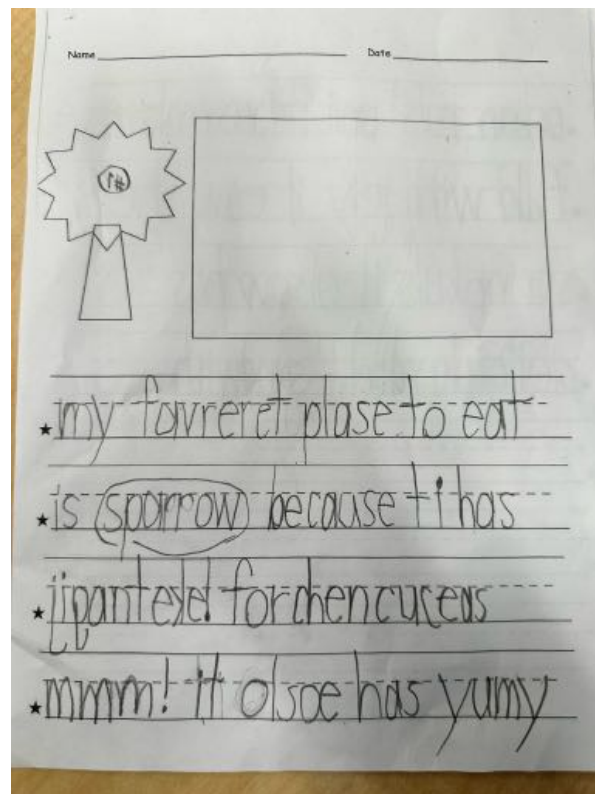 Name Date
#1
my favreret plase to eat
is sparrow because ti has
jipanteke! forchencuceas
mmm! it olsoe has yumy